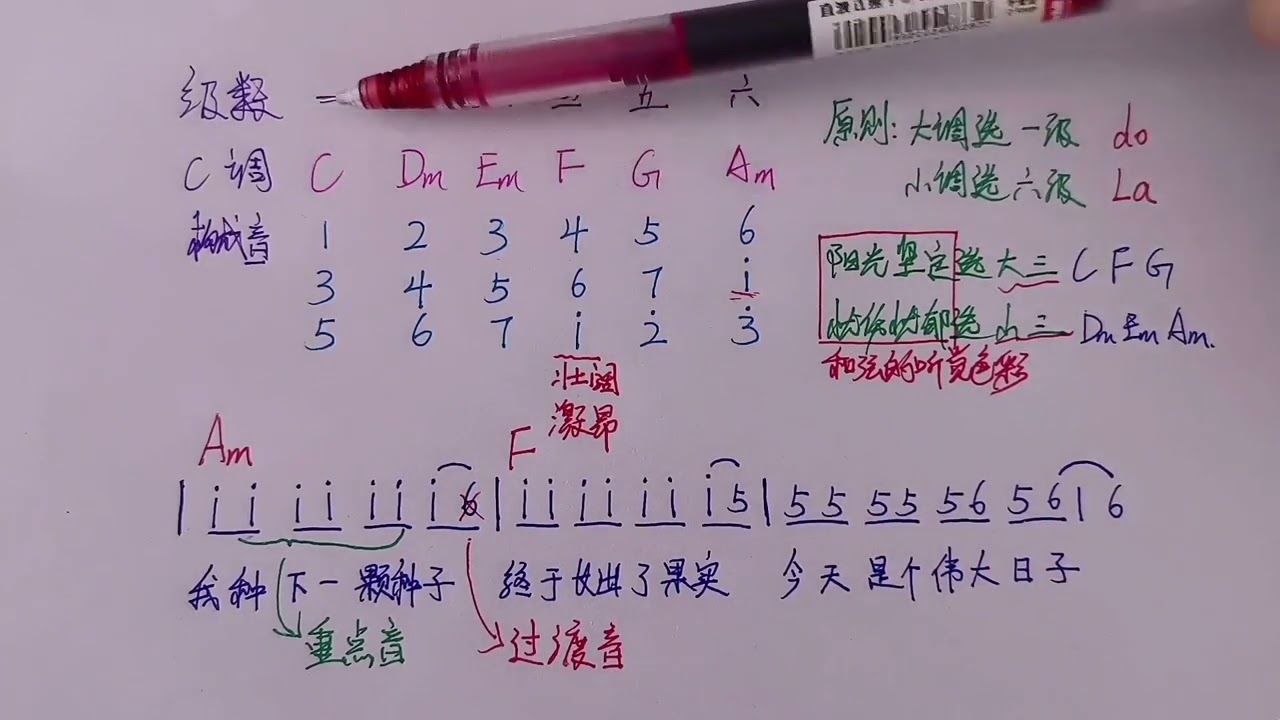 级数 一 三 五 六
C调 C Dm Em F G Am
构成音 1 2 3 4 5 6
3 4 5 6 7 i
5 6 7 i 2̇ 3̇
壮阔
激昂
原则: 大调选一级 do
小调选六级 La
阳光坚定选大三 C F G
选小三 Dm Em Am.
和弦的听觉色彩
Am F
| i i i i i i i 6 | i i i i i i i 5 | 5 5 5 5 5 6 5 6 | 6
我种下一颗种子 终于长出了果实 今天是个伟大日子
重点音 过渡音